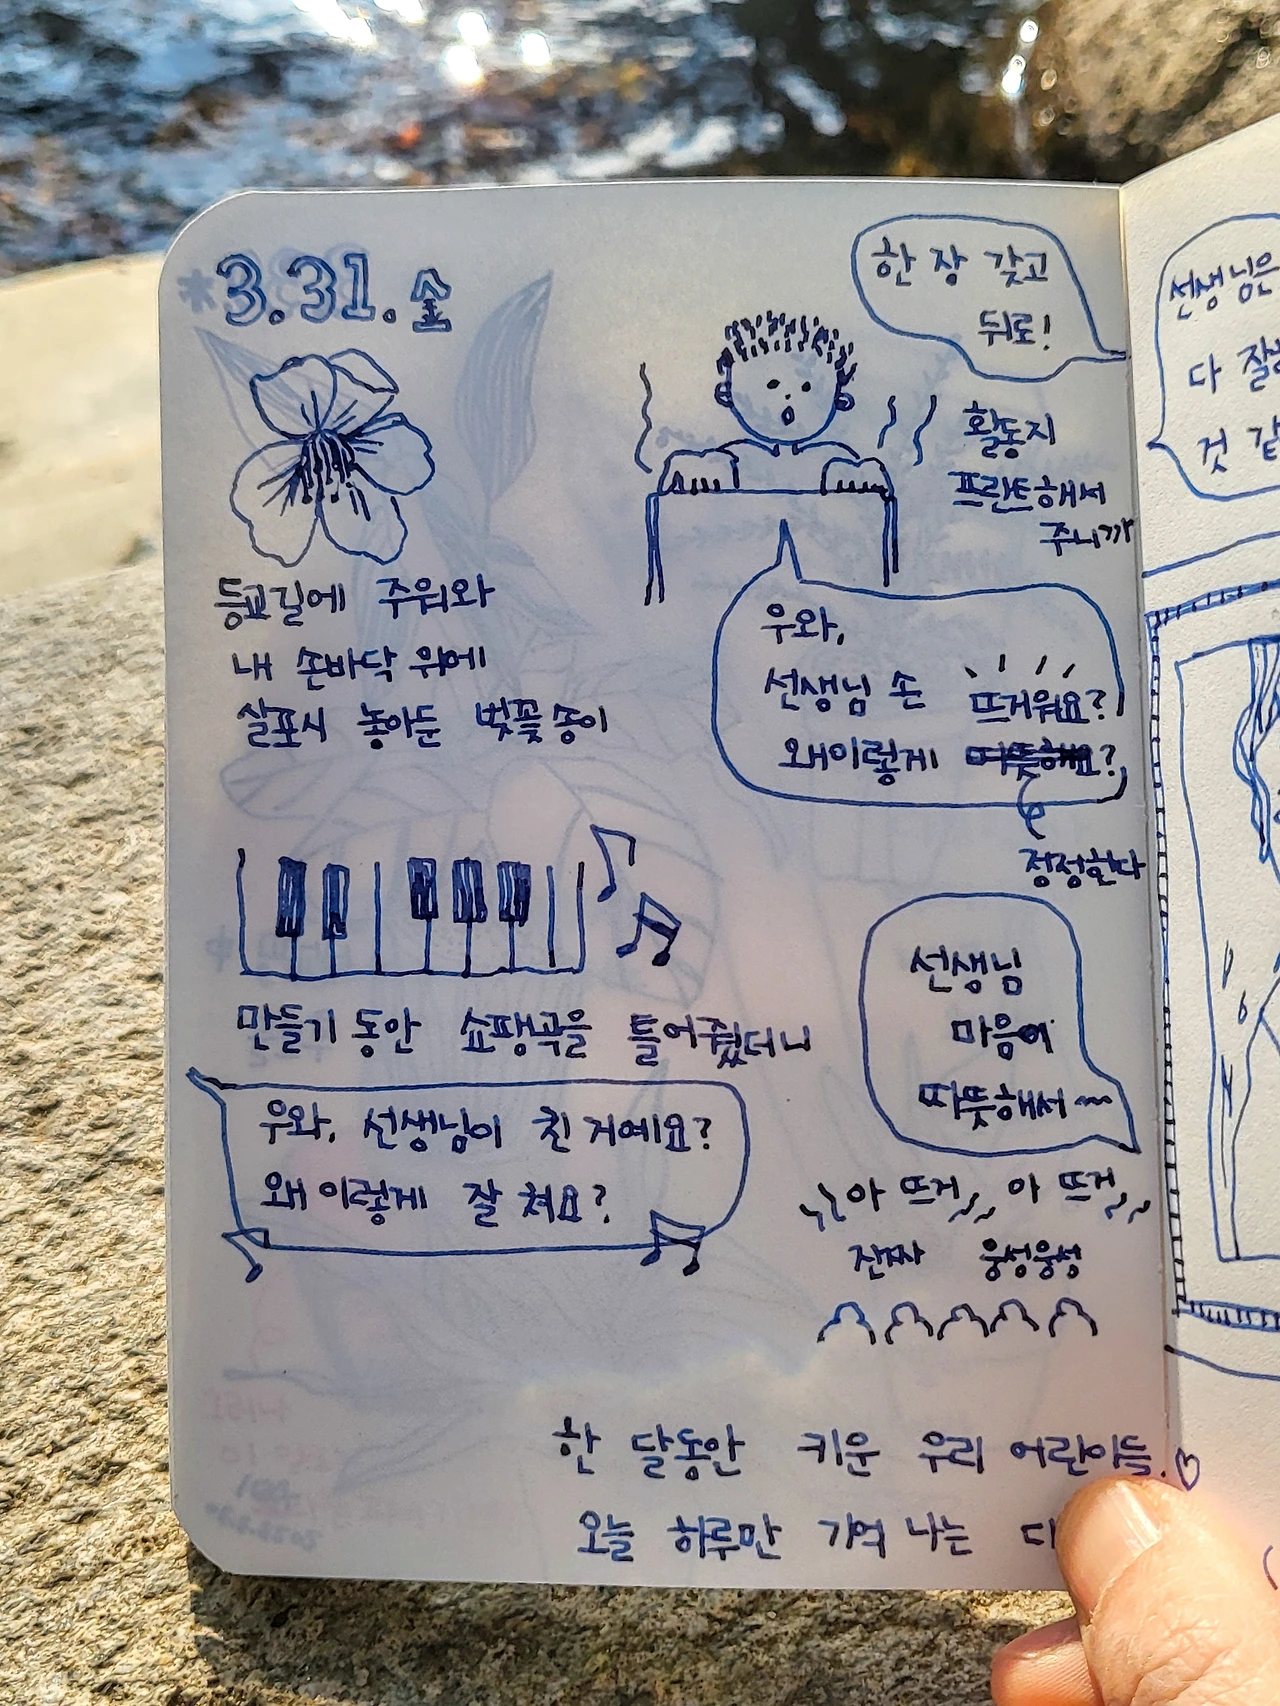 *3.31.金
등교길에 주워와
내 손바닥 위에
살포시 놓아둔 벚꽃송이
만들기 동안 쇼팽곡을 틀어줬더니
우와, 선생님이 친 거예요?
왜 이렇게 잘 쳐요?
한 장 갖고
뒤로!
활동지
프린트해서
주니까
우와,
선생님 손 뜨거워요?
왜이렇게 따뜻해요?
정정한다
선생님
마음이
따뜻해서~
아 뜨거 아 뜨거
진짜 웅성웅성
한 달동안 키운 우리 어린이들.♡
오늘 하루만 기억 나는
선생님은
다
것